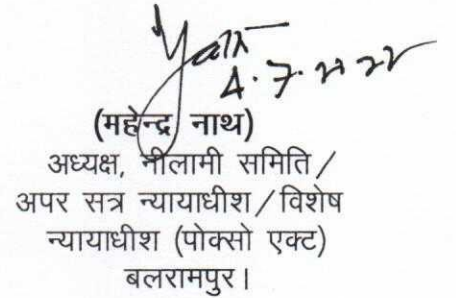 4.7.2022
(महेन्द्र नाथ)
अध्यक्ष, नीलामी समिति /
अपर सत्र न्यायाधीश / विशेष
न्यायाधीश (पोक्सो एक्ट)
बलरामपुर।